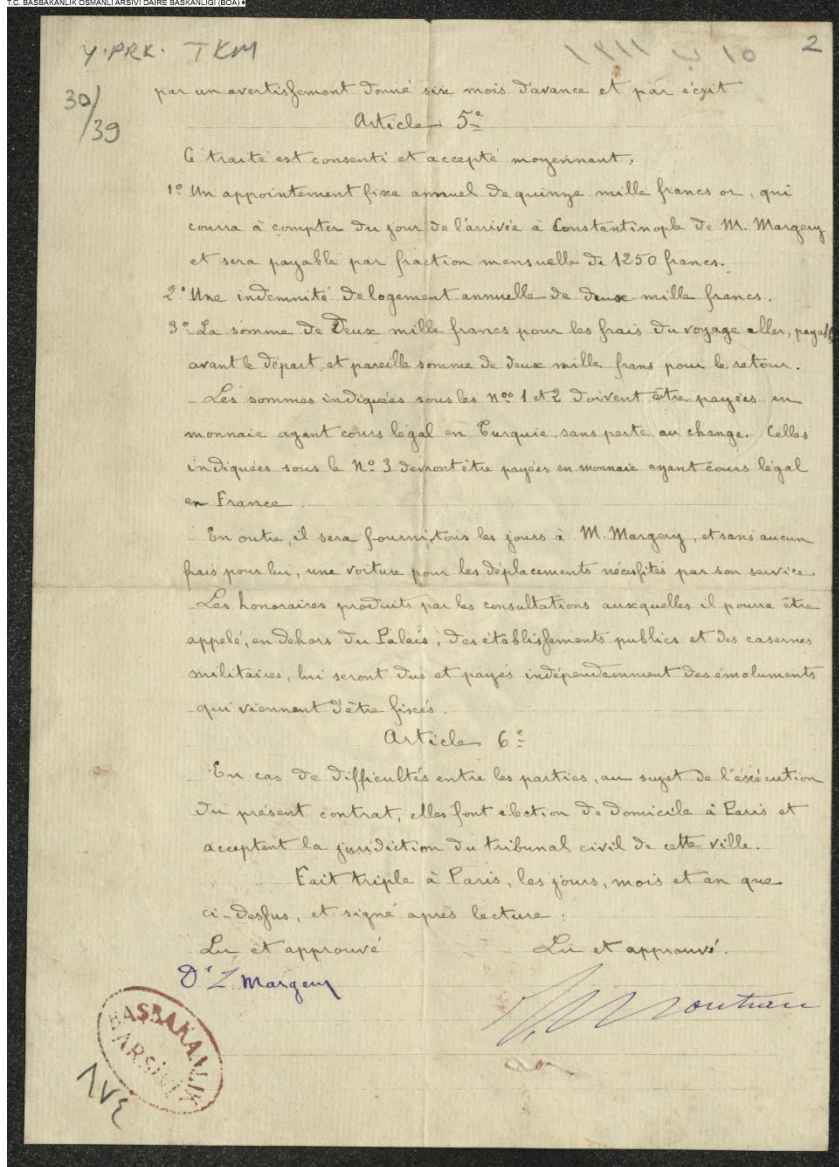 T.C. BAŞBAKANLIK OSMANLI ARŞİVİ DAİRE BAŞKANLIĞI (BOA)
Y.PRK. TKM
١٥ ب ١٣١١
2
30/39
par un avertissement donné six mois d'avance et par écrit
Article 5e
Ce traité est consenti et accepté moyennant,
1º Un appointement fixe annuel de quinze mille francs or, qui
courra à compter du jour de l'arrivée à Constantinople de M. Margery
et sera payable par fraction mensuelle de 1250 francs.
2º Une indemnité de logement annuelle de deux mille francs.
3º La somme de Deux mille francs pour les frais du voyage aller, payable
avant le départ, et pareille somme de deux mille frans pour le retour.
Les sommes indiquées sous les nos 1 et 2 doivent être payées en
monnaie ayant cours légal en Turquie sans perte au change. Celles
indiquées sous le Nº 3 devront être payées en monnaie ayant cours légal
en France
En outre, il sera fourni, tous les jours à M. Margery, et sans aucun
frais pour lui, une voiture pour les déplacements nécessités par son service.
Les honoraires produits par les consultations auxquelles il pourra être
appelé, en dehors du Palais, des établissements publics et des casernes
militaires, lui seront dus et payés indépendamment des émoluments
qui viennent d'être fixés.
Article 6e
En cas de difficultés entre les parties, au sujet de l'exécution
du présent contrat, elles font élection de domicile à Paris et
acceptent la juridiction du tribunal civil de cette ville.
Fait triple à Paris, les jours, mois et an que
ci-dessus, et signé après lecture.
Lu et approuvé
Lu et approuvé.
Dr L Margery
BAŞBAKANLIK
ARŞİVİ
٨٧٤